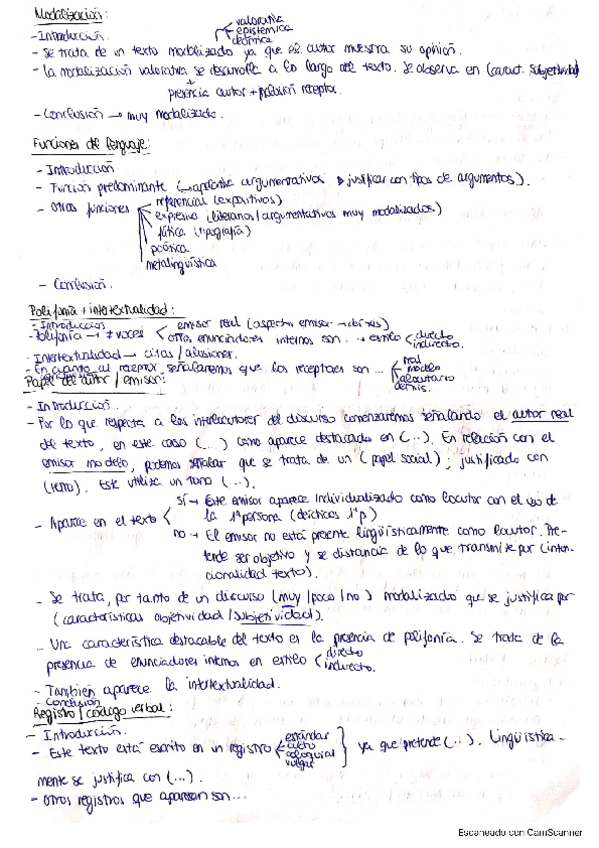 Modalización:
- Introducción. valorativa
epistémica
deóntica
- Se trata de un texto modalizado ya que el autor muestra su opinión.
- La modalización valorativa se desarrolla a lo largo del texto. Se observa en (caract. subjetividad)
+
presencia autor + presencia receptor.
- Conclusión → muy modalizado.
Funciones del lenguaje:
- Introducción
- Función predominante (→ apelativa argumentativos → justificar con tipos de argumentos).
- Otras funciones referencial (expositivos)
expresiva (literarios / argumentativos muy modalizados.)
fática (tipografía)
poética
metalingüística
- Conclusión.
Polifonía + intertextualidad:
- Introducción
- Polifonía → ≠ voces emisor real (aspectos emisor → deixis)
otros enunciadores internos son... → estilo directo
indirecto.
- Intertextualidad → citas / alusiones.
- En cuanto al receptor, señalaremos que los receptores son ... real
modelo
alocutario
deixis.
Papel del autor / emisor:
- Introducción.
- Por lo que respecta a los interlocutores del discurso comenzaremos señalando el autor real
del texto, en este caso (...) como aparece destacado en (...). En relación con el
emisor modelo, podemos señalar que se trata de un (papel social); justificado con
(tema). Este utiliza un tono (...).
- Aparece en el texto sí → Este emisor aparece individualizado como locutor con el uso de
la 1ª persona (deícticos 1ª p)
no → El emisor no está presente lingüísticamente como locutor. Pre-
tende ser objetivo y se distancia de lo que transmite por (inten-
cionalidad texto).
- Se trata, por tanto de un discurso (muy / poco / no) modalizado que se justifica por
(características objetividad / subjetividad).
- Una característica destacable del texto es la presencia de polifonía. Se trata de la
presencia de enunciadores internos en estilo directo
indirecto.
- También aparece la intertextualidad.
- Conclusión
Registro / código verbal:
- Introducción.
- Este texto está escrito en un registro estándar
culto
coloquial
vulgar } ya que pretende (...). Lingüística-
mente se justifica con (...).
- Otros registros que aparecen son...
Escaneado con CamScanner